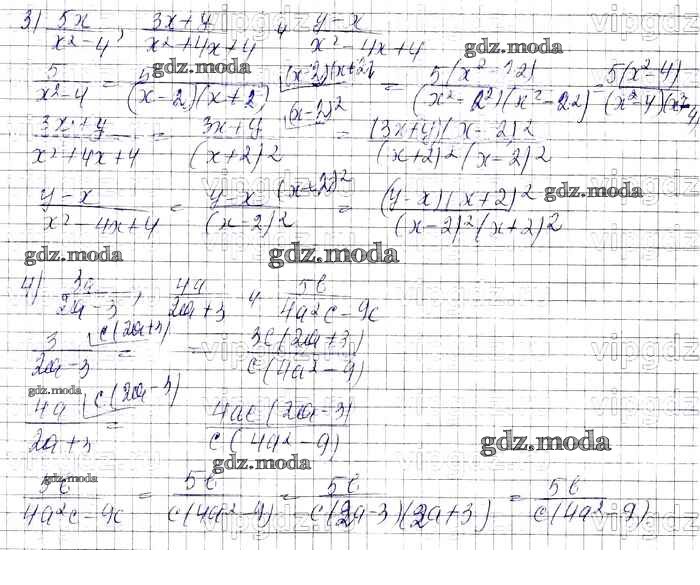 3) 5x/(x²-4), (3x+4)/(x²+4x+4) и (y-x)/(x²-4x+4)
gdz.moda gdz.moda
5/(x²-4) = 5/((x-2)(x+2)) = 5(x²-22)/((x²-2²)(x²-22)) = 5(x²-4)/((x²-4)(x²-4)
(3x+y)/(x²+4x+4) = (3x+y)/(x+2)2 (x-2)² = (3x+y)(x-2)2/((x+2)2(x-2)2
(y-x)/(x²-4x+4) = (y-x)/(x-2)2 (x+2)² = (y-x)(x+2)2/((x-2)²(x+2)2
gdz.moda
gdz.moda gdz.moda
4) 3a/(2a-3), 4a/(2a+3) и 5b/(4a²c-9c)
3/(2a-3) c(2a+3) = = 3c(2a+3)/(c(4a²-9)
gdz.moda
4a/(2a+3) c(2a-3) = 4ac(2a-3)/(c(4a²-9)
gdz.moda
gdz.moda gdz.moda
5b/(4a²c-9c) = 5b/(c(4a²-9) = 5b/(c(2a-3)(2a+3) = 5b/(c(4a²-9)
vipgdz